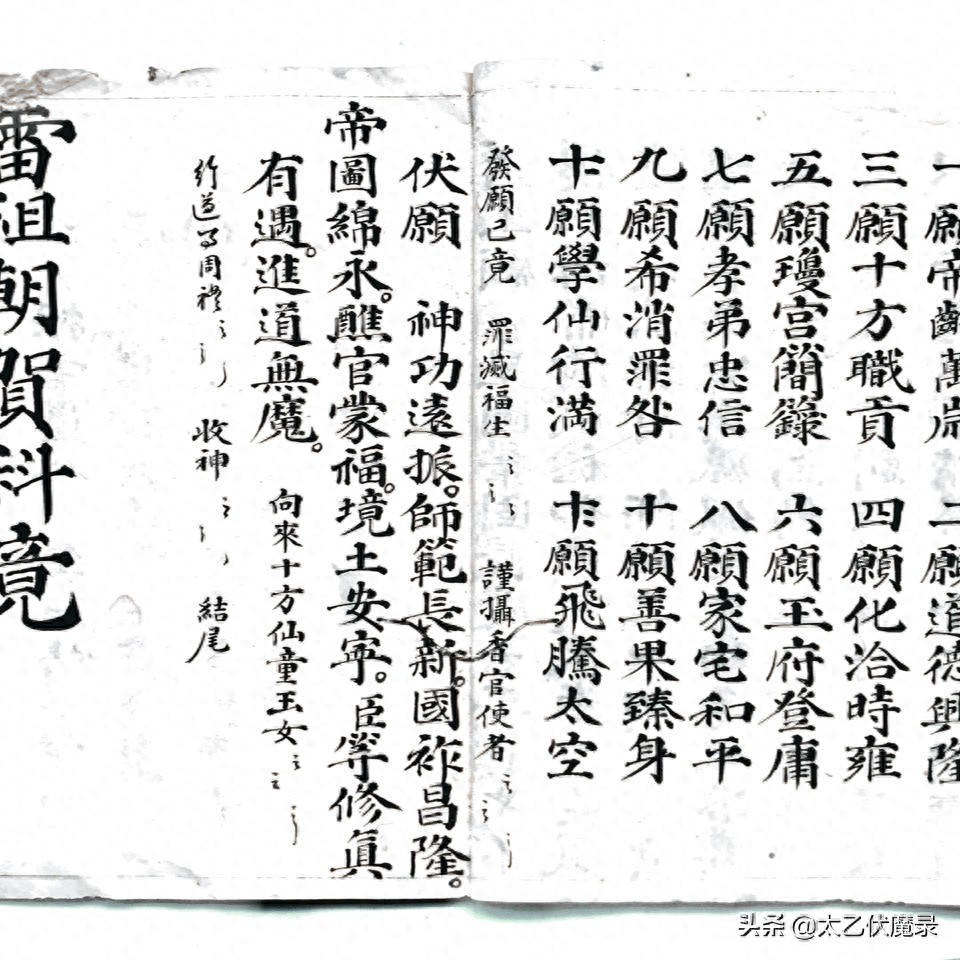 一願帝齡萬歲 二願道德興隆
三願十方職貢 四願化洽時雍
五願瓊宮簡錄 六願玉府登庸
七願孝弟忠信 八願家宅和平
九願希消罪咎 十願善果臻身
十一願學仙行滿 十二願飛騰太空
發願已竟 罪滅福生 謹攝香官使者
伏願 神功遠振。師範長新。國祚昌隆。
帝圖綿永。醮官蒙福。境土安寧。臣等修真
有遇。進道無魔。 向來十方仙童玉女
行道 周禮 收神 結尾
雷祖朝賀科竟
头条 @太乙伏魔录